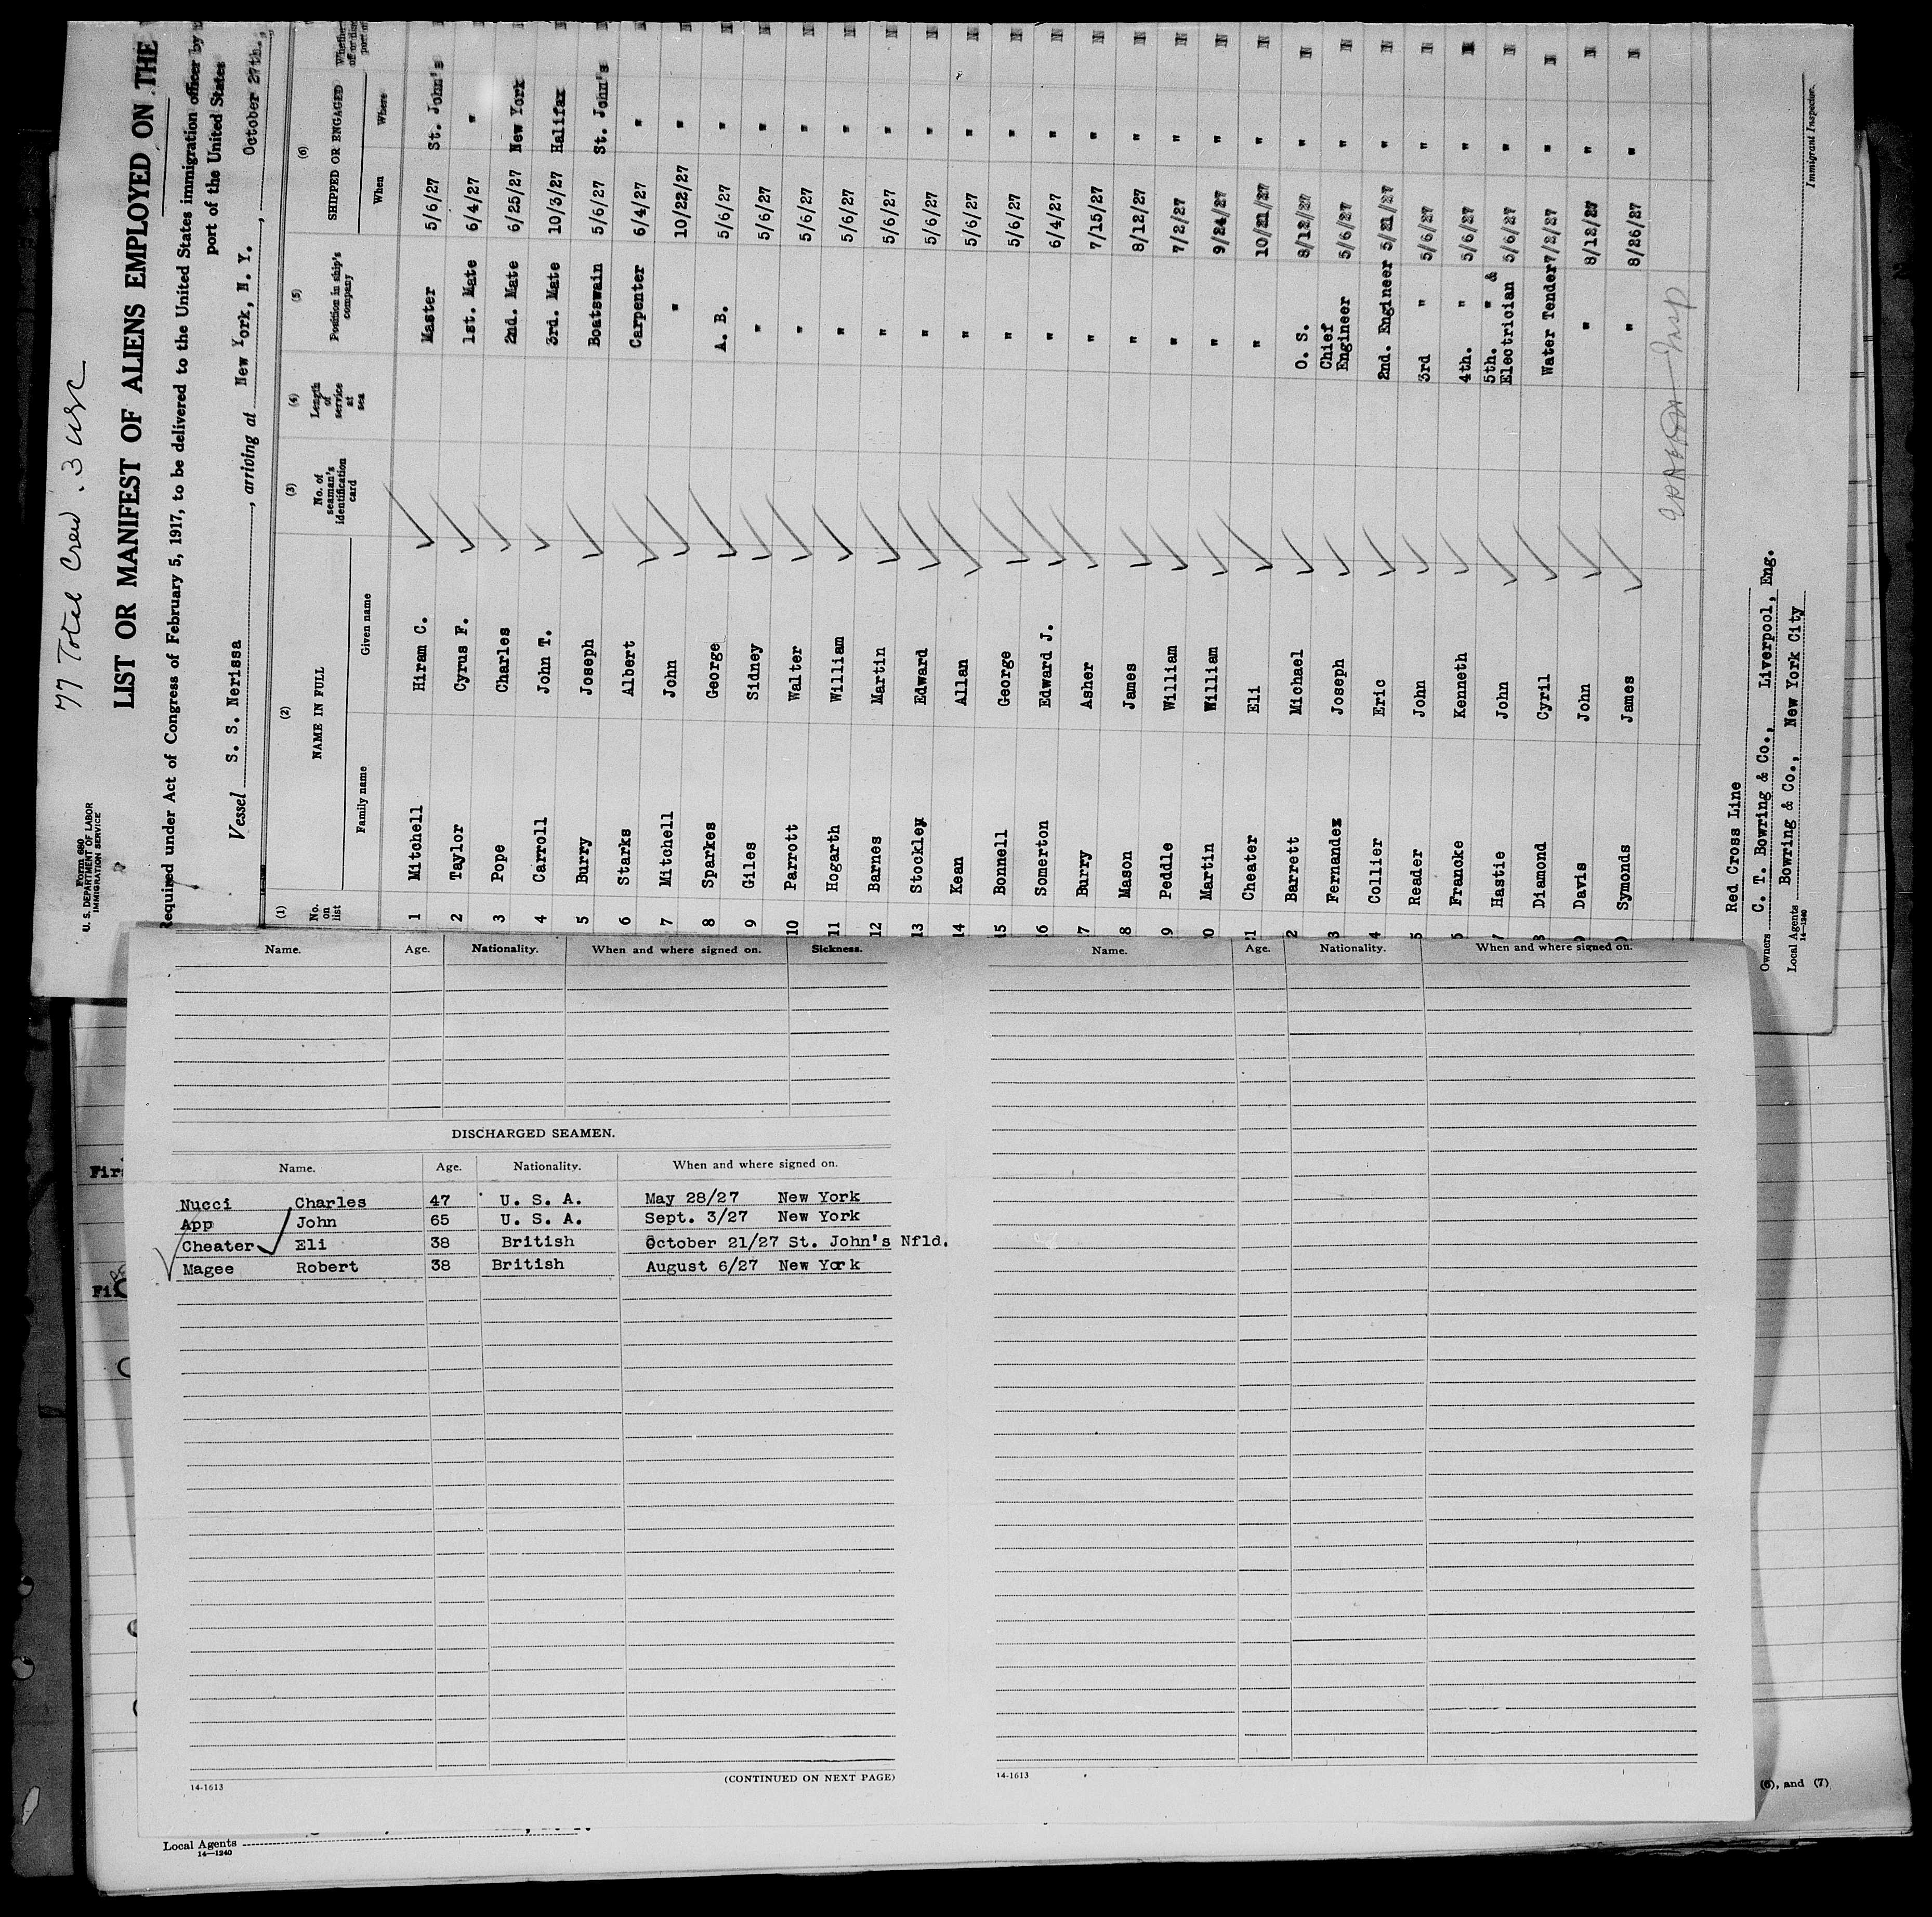 77 Total Crew. 3 USC
Form 680
U. S. DEPARTMENT OF LABOR
IMMIGRATION SERVICE
LIST OR MANIFEST OF ALIENS EMPLOYED ON THE
Required under Act of Congress of February 5, 1917, to be delivered to the United States immigration officer by
port of the United States
Vessel S. S. Nerissa, arriving at New York, N. Y., October 27th.,
(1) (2) (3) (4) (5) (6)
No. on list NAME IN FULL No. of seaman's identification card Length of service at sea Position in ship's company SHIPPED OR ENGAGED
Family name Given name When Where
1 Mitchell Hiram C. Master 5/6/27 St. John's
2 Taylor Cyrus F. 1st. Mate 6/4/27 "
3 Pope Charles 2nd. Mate 6/25/27 New York
4 Carroll John T. 3rd. Mate 10/3/27 Halifax
5 Burry Joseph Boatswain 5/6/27 St. John's
6 Starks Albert Carpenter 6/4/27 "
7 Mitchell John " 10/22/27 "
8 Sparkes George A. B. 5/6/27 "
9 Giles Sidney " 5/6/27 "
10 Parrott Walter " 5/6/27 "
11 Hogarth William " 5/6/27 "
12 Barnes Martin " 5/6/27 "
13 Stockley Edward " 5/6/27 "
14 Kean Allan " 5/6/27 "
15 Bonnell George " 5/6/27 "
16 Somerton Edward J. " 6/4/27 "
7 Burry Asher " 7/15/27 "
8 Mason James " 8/12/27 "
9 Peddle William " 7/2/27 "
0 Martin William " 9/24/27 "
1 Cheater Eli " 10/21/27 "
2 Barrett Michael O. S. 8/12/27 "
3 Fernandez Joseph Chief Engineer 5/6/27 "
4 Collier Eric 2nd. Engineer 5/21/27 "
5 Reader John 3rd " 5/6/27 "
6 Francke Kenneth 4th. " 5/6/27 "
7 Hastie John 5th. " & Electrician 5/6/27 "
8 Diamond Cyril Water Tender 7/2/27 "
9 Davis John " 8/12/27 "
Symonds James " 8/26/27 "
Red Cross Line
Owners C. T. Bowring & Co., Liverpool, Eng.
Local Agents Bowring & Co., New York City
14-1240
Immigrant Inspector.
Name. Age. Nationality. When and where signed on. Sickness.
DISCHARGED SEAMEN.
Name. Age. Nationality. When and where signed on.
Nucci Charles 47 U. S. A. May 28/27 New York
App John 65 U. S. A. Sept. 3/27 New York
Cheater Eli 38 British October 21/27 St. John's Nfld.
Magee Robert 38 British August 6/27 New York
14-1613
(CONTINUED ON NEXT PAGE)
Name. Age. Nationality. When and where signed on.
14-1613
(6), and (7)
Local Agents
14—1240